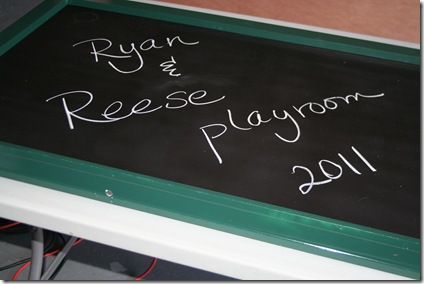 Ryan
&
Reese
playroom
2011